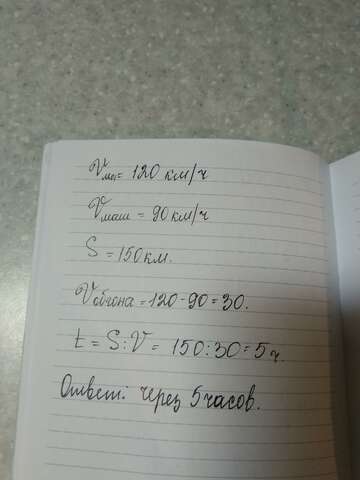 Vмот = 120 км/ч
Vмаш = 90 км/ч
S = 150 км.
Vобгона = 120 - 90 = 30.
t = S : V = 150 : 30 = 5 ч.
Ответ: через 5 часов.